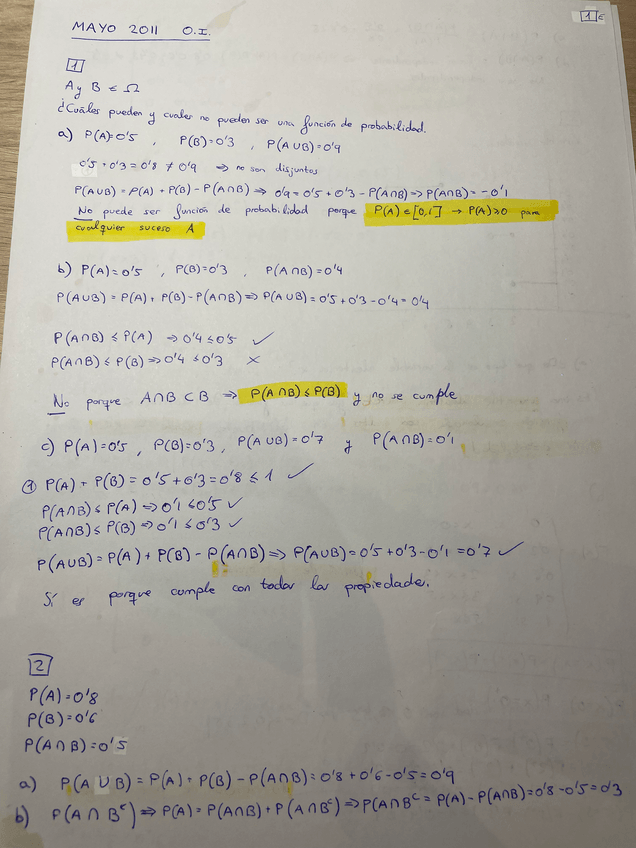 1 E
MAYO 2011 O.I.
1
A y B ∈ Ω
¿Cuáles pueden y cuales no pueden ser una función de probabilidad.
a) P(A)=0'5 , P(B)=0'3 , P(A∪B)=0'9
0'5 + 0'3 = 0'8 ≠ 0'9 ⇒ no son disjuntos
P(A∪B) = P(A) + P(B) - P(A∩B) ⇒ 0'9 = 0'5 + 0'3 - P(A∩B) ⇒ P(A∩B) = -0'1
No puede ser función de probabilidad porque P(A) ∈ [0,1] → P(A) ≥ 0 para
cualquier suceso A
b) P(A)=0'5 , P(B)=0'3 , P(A∩B)=0'4
P(A∪B) = P(A) + P(B) - P(A∩B) ⇒ P(A∪B) = 0'5 + 0'3 - 0'4 = 0'4
P(A∩B) ≤ P(A) ⇒ 0'4 ≤ 0'5 ✓
P(A∩B) ≤ P(B) ⇒ 0'4 ≤ 0'3 ×
No porque A∩B ⊂ B ⇒ P(A∩B) ≤ P(B) y no se cumple
c) P(A)=0'5 , P(B)=0'3 , P(A∪B)=0'7 y P(A∩B)=0'1
① P(A) + P(B) = 0'5 + 0'3 = 0'8 ≤ 1 ✓
P(A∩B) ≤ P(A) ⇒ 0'1 ≤ 0'5 ✓
P(A∩B) ≤ P(B) ⇒ 0'1 ≤ 0'3 ✓
P(A∪B) = P(A) + P(B) - P(A∩B) ⇒ P(A∪B) = 0'5 + 0'3 - 0'1 = 0'7 ✓
Sí es porque cumple con todas las propiedades.
2
P(A) = 0'8
P(B) = 0'6
P(A∩B) = 0'5
a) P(A∪B) = P(A) + P(B) - P(A∩B) = 0'8 + 0'6 - 0'5 = 0'9
b) P(A∩Bᶜ) ⇒ P(A) = P(A∩B) + P(A∩Bᶜ) ⇒ P(A∩Bᶜ = P(A) - P(A∩B) = 0'8 - 0'5 = 0'3